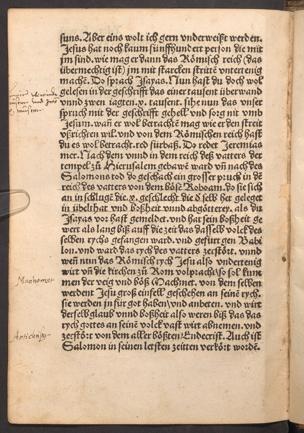 suns. Aber eins wolt ich gern vnderweist werden.
Jesus hat noch kaum fünffhundert person die mit
jm sind. wie mag er dann das Römisch reich (das
übermechtig ist) jm mit starcken stritte vntertenig
mache. Do sprach Jsayas. Nun hast du doch wol
gelesen in der geschrifft das einer tausent überwand
vnnd zwen tausent. sihe nun das vnser
spruch mit der geschrifft gehell vnd sorg nit vmb
Jesum. wañ er wol betrachte mag wie er den streit
volfüren wil. vnd von dem Römischen reich hast
du es wol betracht. red fürbaß. Do redet Jeremias
mer. Nach dem vnnd in dem reich deß vatters der
tempel zů Hierusalem gebawe ward vñ nach des
Salomons tod do geschach ein grosser pruch in dē
reich des vatters von dem böse Roboam. do sie sich
an in schlugē die .x. geschlecht. die do selb her gelegē
in übelthat vnd boßheit vnnd abgötterey. als du
Jsayas vor hast gemeldet. vnd hat sein boßheit ge
wert als lang biß auff die zeit das dasselb volck des
selben rychs gefangen ward. vnd gefürt gen Babi
lon. vnd ward das rych des vatters zerstört. vnnd
weñ nun das Römisch rych Jesu also vndertenig
wirt vñ die kirchen zů Rom volpracht so sol kum
men der veig vnd böß Machmet. von dem selben
werdent Jesu groß einfell geschehen an seinē rych.
sie werden jn für got haben vnd anbeten. vnd wirt
der selb glaub vnnd boßheit also weren biß das das
rych gottes an seinē volck vast wirt abnemen. vnd
zerstört von dem aller bößten Endecrist. Auch ist
Salomon in seinen letsten zeitten verkört worde.
Machomet
Antichrist